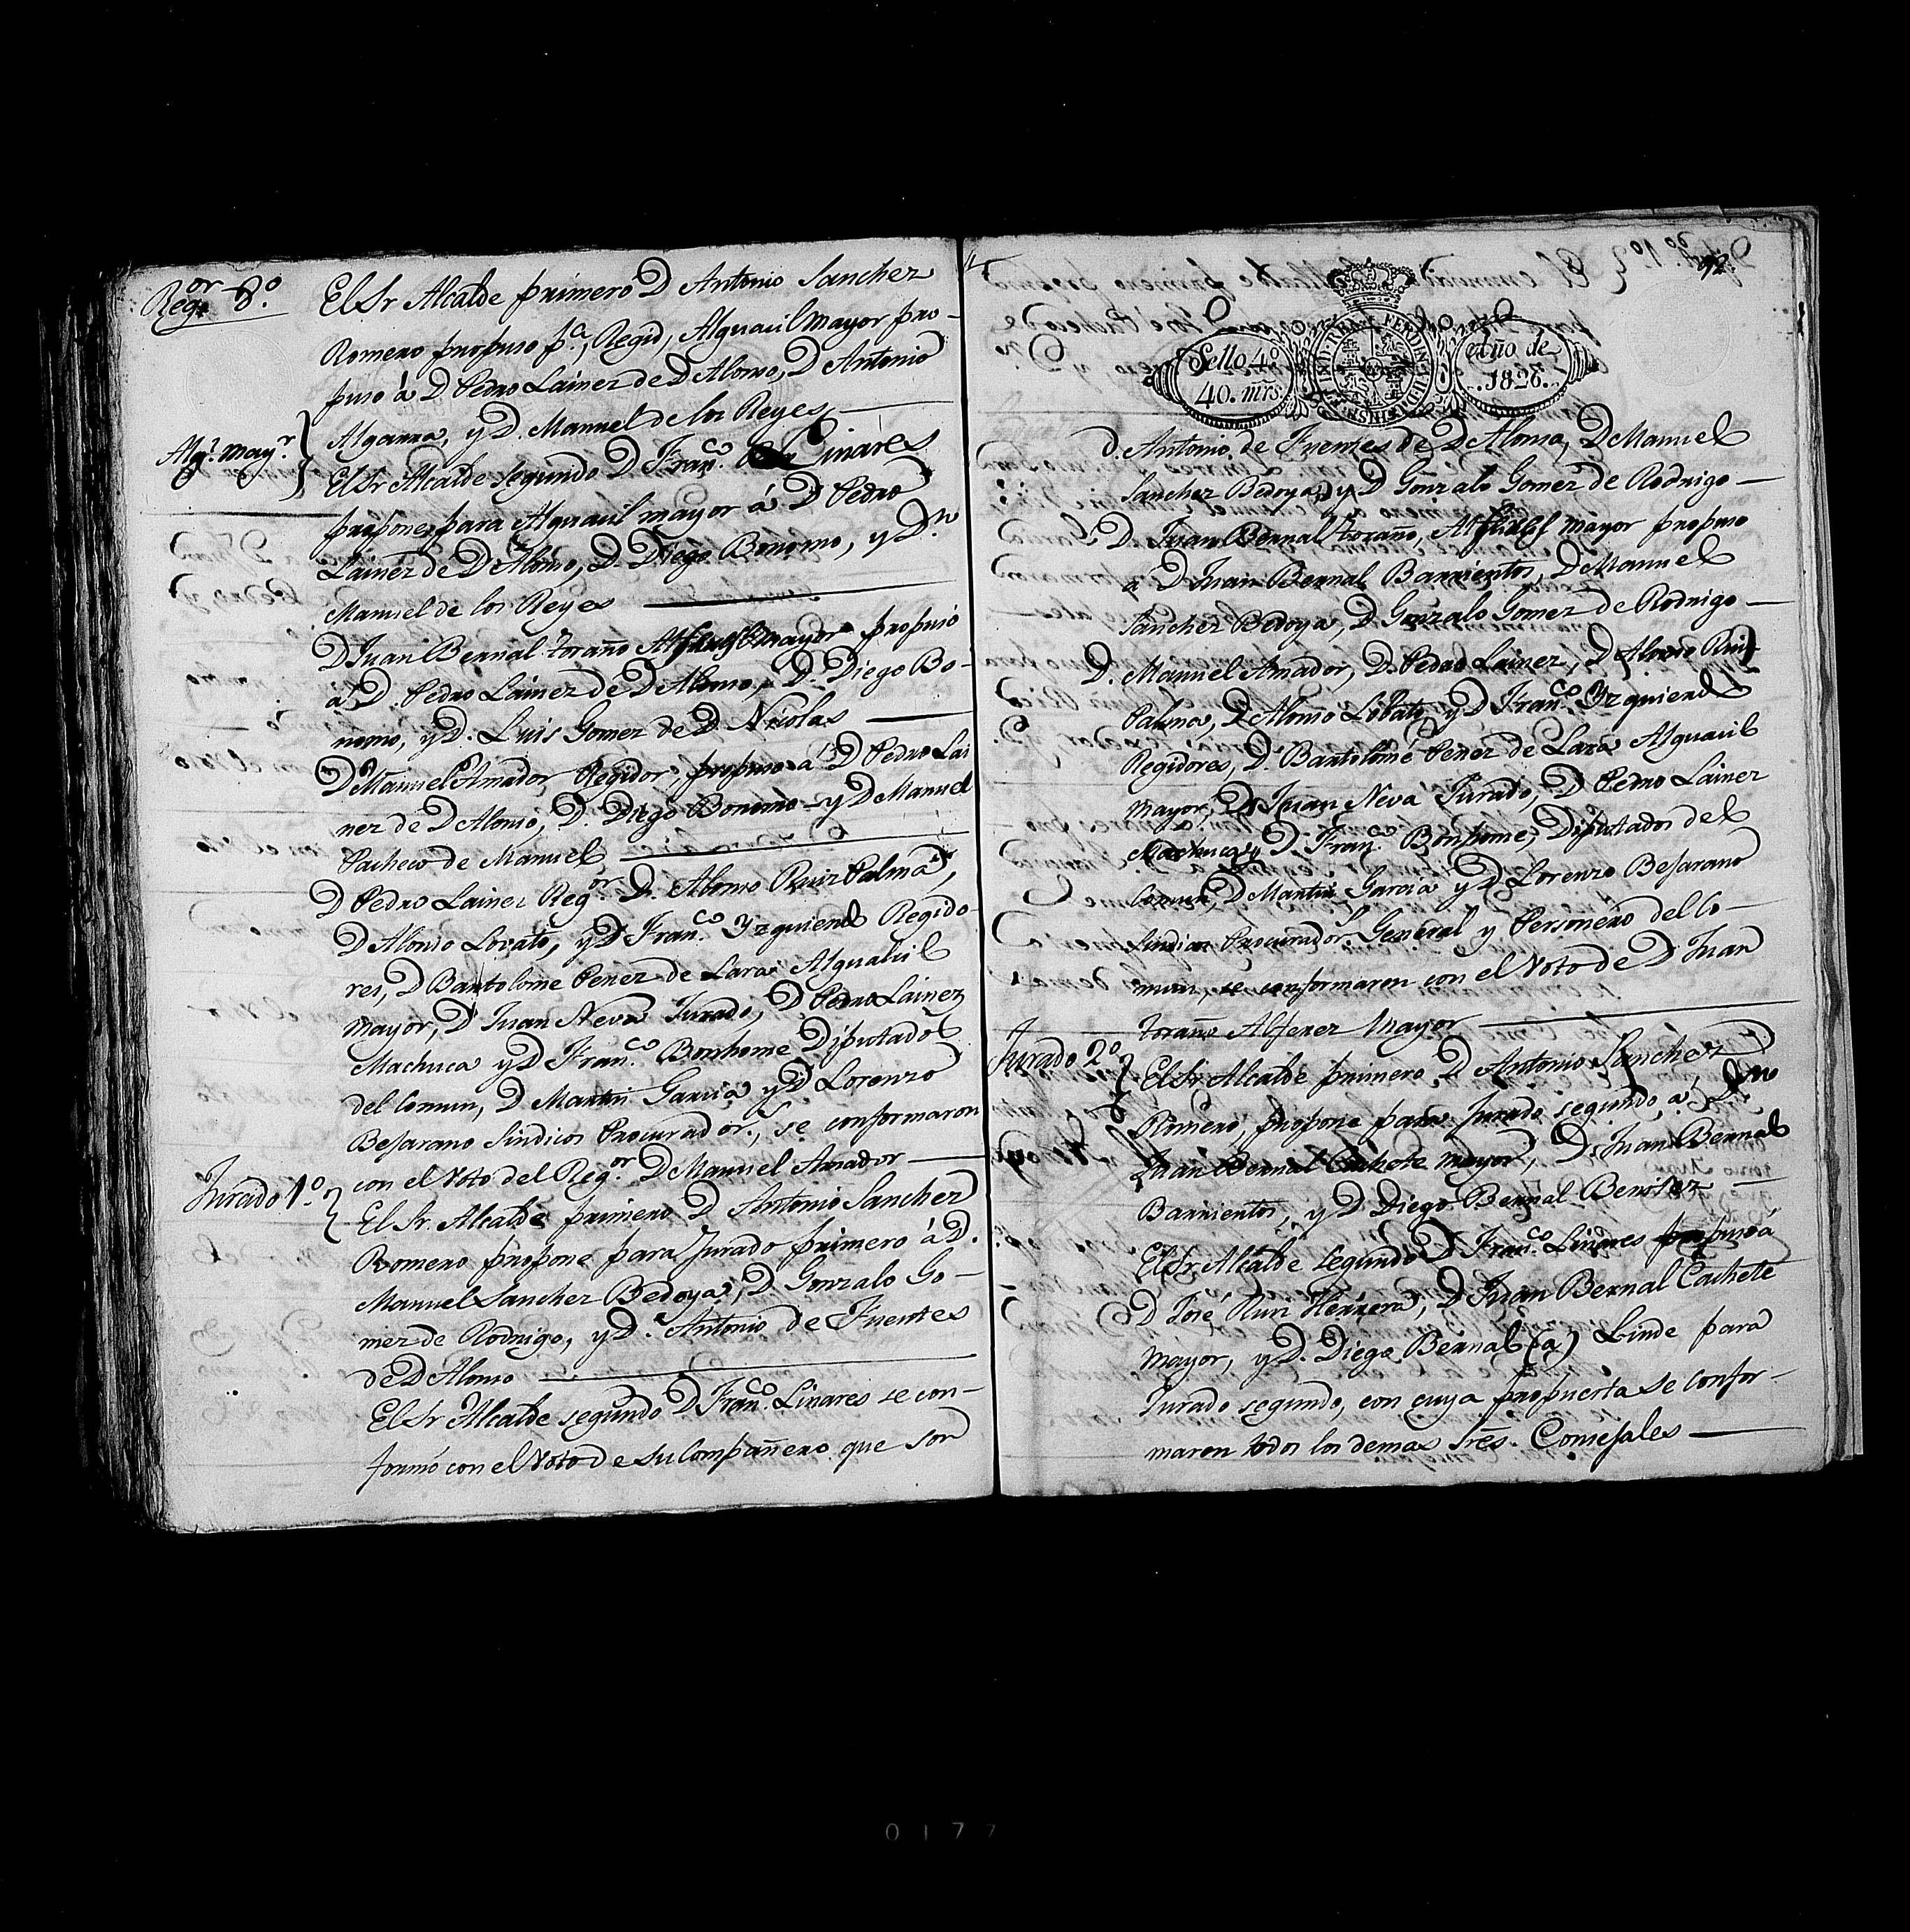 Reg.or 8.o
El Sr Alcalde primero D Antonio Sanchez
Romero propuso p.a, Regid, Alguacil Mayor pro-
puso á D Pedro Lainez de D Alonso, D Antonio
Algarra, y D. Manuel de los Reyes
Alg.l may.r
El Sr Alcalde segundo D Fran.co Linares
propone para Alguacil mayor á D Pedro
Lainez de D Alonso, D. Diego Bonomo, y D.n
Manuel de los Reyes
D Juan Bernal toraño Alferez mayor propusó
á D. Pedro Lainez de D Alonso, D. Diego Bo-
nomo, y D. Luis Gomez de D. Nicolas
D Manuel Amador, Regidor, propuso a D Pedro Lai
nez de D Alonso, D. Diego Bonomo y D Manuel
Pacheco de Manuel
D Pedro Lainez Reg.or D. Alonso Ruiz Palma,
D Alonso Lovato, y D Fran.co Yzquierd Regido-
res, D Bartolome Perez de Lara Alguacil
mayor, D Juan Neva Jurado, D Pedro Lainez
Machuca y D Fran.co Bonhome Diputados
del Comun, D Martin Garcia y D Lorenzo
Bejarano Sindicos Procurador., se conformaron
con el Voto del Reg.or D Manuel Amador
Jurado 1.o
El Sr. Alcalde primero D Antonio Sanchez
Romero propone para Jurado primero á D.
Manuel Sanchez Bedoya, D Gonzalo Go-
mez de Rodrigo, y D. Antonio de Fuentes
de D Alonso
El Sr Alcalde segundo D Fran.co Linares se con-
formó con el Voto de su Compañero que son
92
Sello 4.o
40. mrs
Año de
1826.
D Antonio de Fuentes de D Alonso, D Manuel
Sanchez Bedoya, y D Gonzalo Gomez de Rodrigo
D. Juan Bernal toraño, Alferez mayor propuso
a D Juan Bernal Barrientos, D Manuel
Sanchez Bedoya, D Gonzalo Gomez de Rodrigo
D. Manuel Amador, D. Pedro Lainez, D Alonso Ruiz
Palma, D Alonso Lobato, y D Fran.co Yzquierd
Regidores, D. Bartolomé Perez de Lara Alguacil
mayor, D Juan Neva Jurado, D Pedro Lainez
Machuca y D. Fran.co Bonhome, Diputados del
Comun, D Martin Garcia y D Lorenzo Bejarano
Sindico Procurador General y Personero del Co-
mun, se conformaron con el Voto de D Juan
toraño Alferez Mayor
Jurado 2.o
El Sr Alcalde primero D Antonio Sanchez
Romero, propone para Jurado segundo, á D.n
Juan Bernal Cachete mayor, D. Juan Bernal
Barrientos, y D Diego Bernal Benitez
El Sr Alcalde segundo D Fran.co Linares propuso á
D José Ruiz Herrera, D Juan Bernal Cachete
mayor, y D. Diego Bernal (a) Linde para
Jurado segundo, con cuya propuesta se confor-
maron todos los demas Sres. Consejales
0177